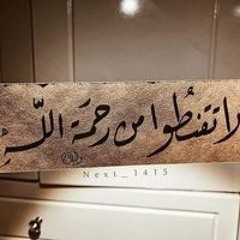 لا تقنطوا من رحمة اللّٰه
Next_1415